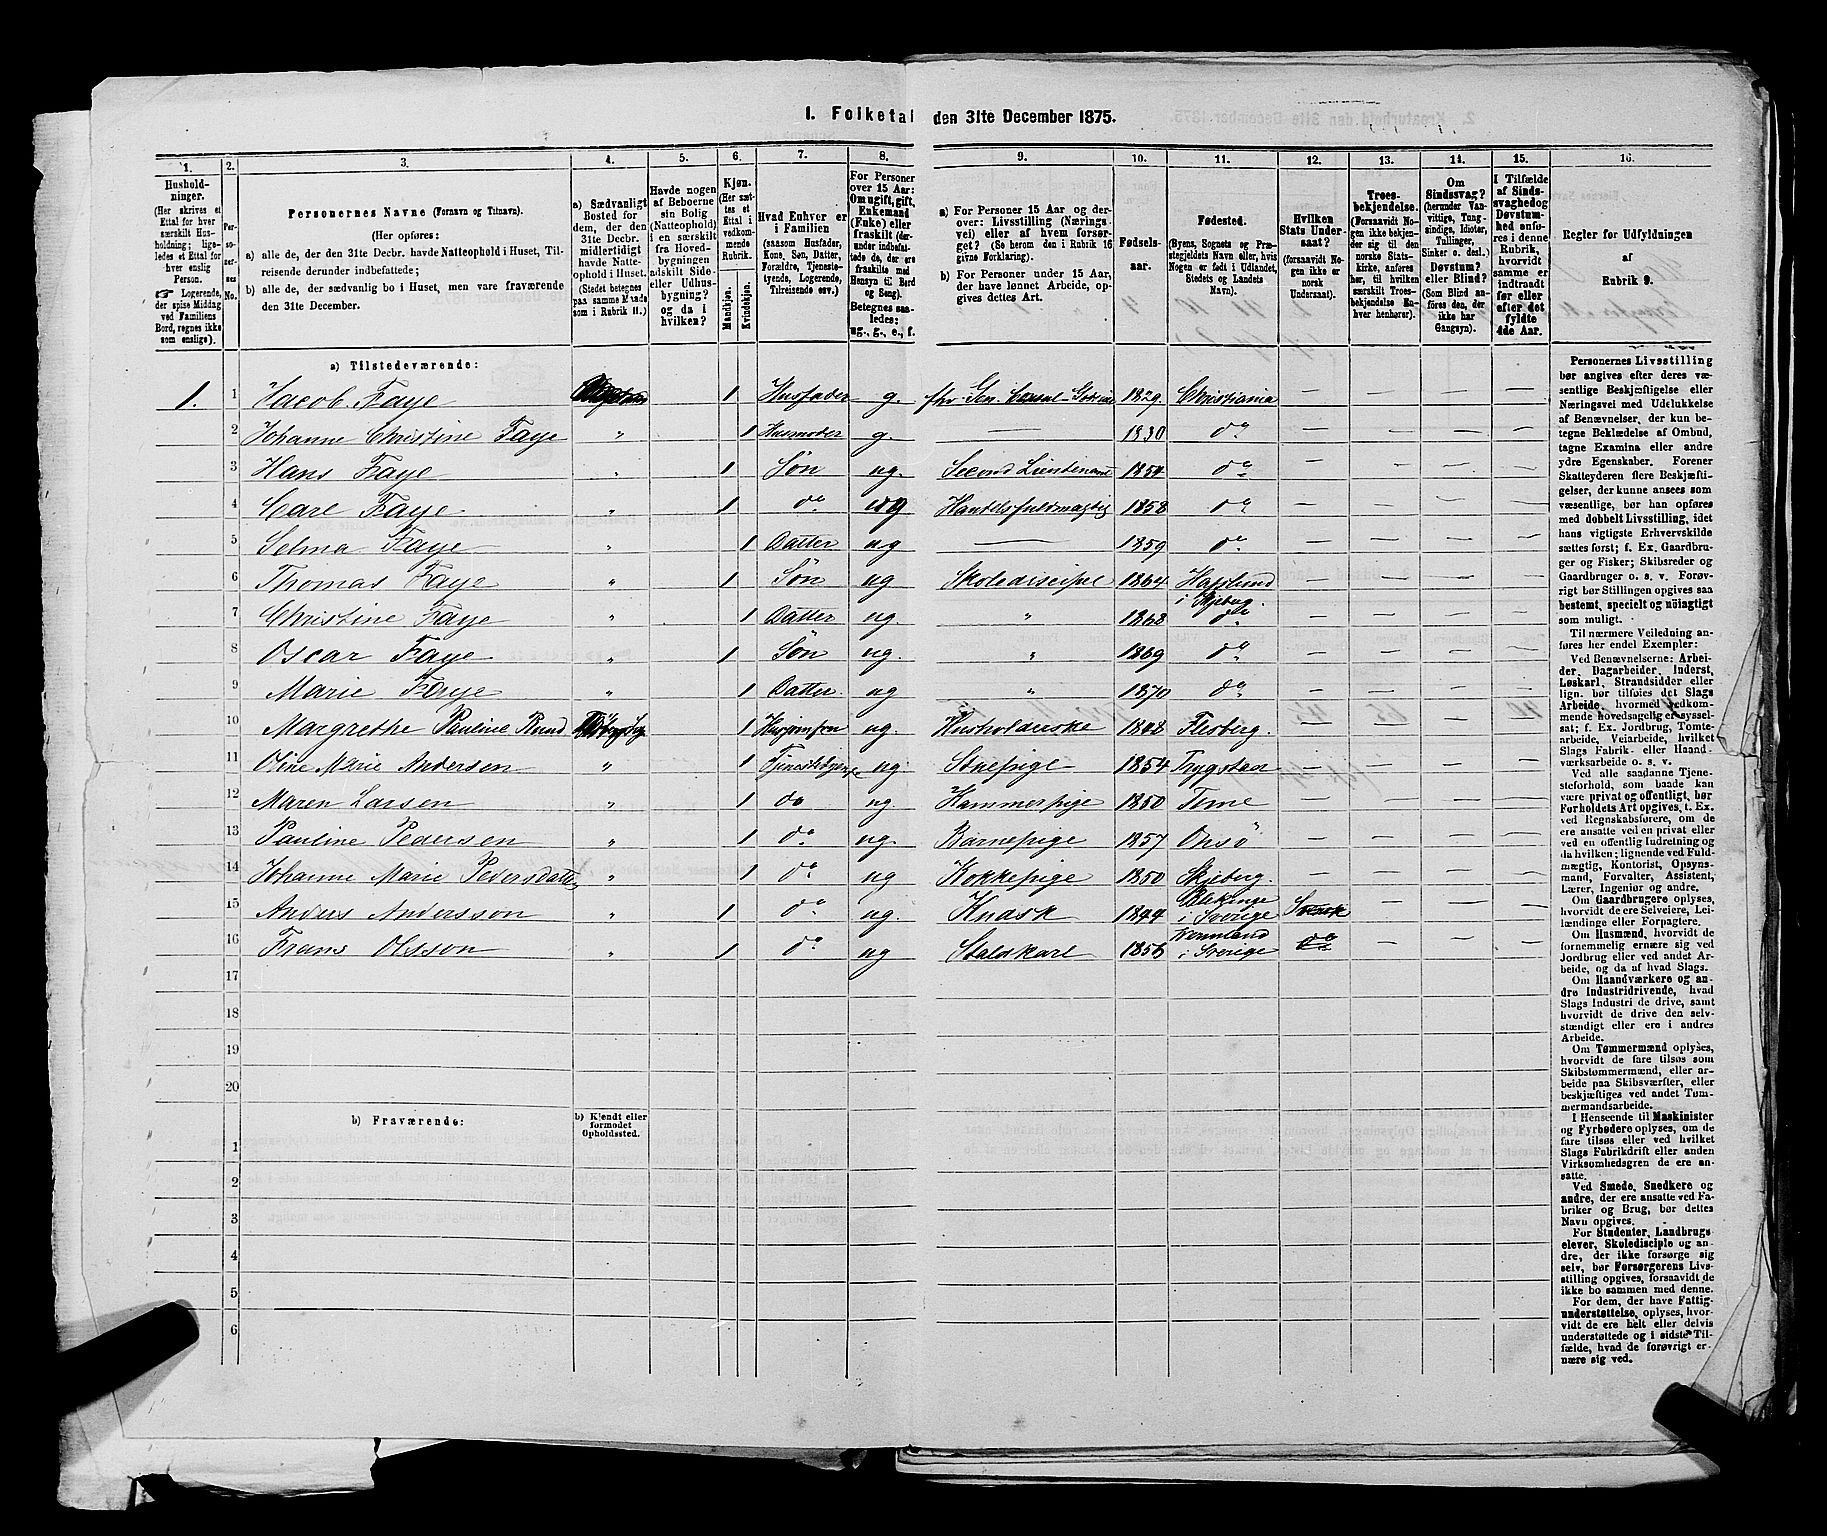 1. Folketal den 31te December 1875.
1. 2. 3. 4. 5. 6. 7. 8. 9. 10. 11. 12. 13. 14. 15. 16.
Husholdninger.
(Her skrives et
Ettal for hver
særskilt Husholdning; ligeledes
et Ettal for
hver enslig
Person.
☞ Logerende,
der spise Middag
ved Familiens
Bord, regnes ikke
som enslige).
Personernes No.
Personernes Navne (Fornavn og Tilnavn).
(Her opføres:
a) alle de, der den 31te Decbr. havde Natteophold i Huset, Tilreisende derunder indbefattede;
b) alle de, der sædvanlig bo i Huset, men vare fraværende
den 31te December.
a) Sædvanligt
Bosted for
dem, der den
31te Decbr.
midlertidigt
havde Natteophold i Huset.
(Stedet betegnes
paa samme Maade
som i Rubrik 11.)
Havde nogen
af Beboerne
sin Bolig
(Natteophold)
i en særskilt
fra Hovedbygningen
adskilt Side- eller Udhusbygning?
og da i
hvilken?
Kjøn.
(Her sættes et
Ettal i
vedkommende
Rubrik.
Mandkjøn.
Kvindekjøn.
Hvad Enhver er
i Familien
(saasom Husfader,
Kone, Søn, Datter,
Forældre, Tjenestetyende, Logerende,
Tilreisende osv.)
For Personer
over 15 Aar:
Om ugift, gift,
Enkemand
(Enke) eller
fraskilt (derunder indbefattede de, der
ere fraskilte med
Hensyn til Bord
og Seng).
Betegnes saaledes:
ug., g., e., f.
a) For Personer 15 Aar og derover: Livsstilling (Næringsvei) eller af hvem forsørget? (Se herom den i Rubrik 16
givne Forklaring).
b) For Personer under 15 Aar,
der have lønnet Arbeide, opgives dettes Art.
Fødselsaar.
Fødested.
(Byens, Sognets og Præstegjeldets Navn eller, hvis
Nogen er født i Udlandet,
Stedets og Landets
Navn).
Hvilken
Stats Undersaat?
(forsaavidt Nogen ikke er
norsk
Undersaat).
Troesbekjendelse.
(Forsaavidt Nogen ikke bekjender sig til den
norske Statskirke, anføres
her, til hvilken
særskilt Troesbekjendelse Enhver henhører).
Om
Sindssvag?
(herunder Vanvittige, Tungsindige, Idioter,
Tullinger,
Sinker o. desl.)
Døvstum?
eller Blind?
(Som Blind anføres den, der
ikke har
Gangsyn).
I Tilfælde
af Sindssvaghed og
Døvstumhed anføres i denne
Rubrik,
hvorvidt
samme er
indtraadt
før eller
efter det
fyldte
4de Aar.
Regler for Udfyldningen
af
Rubrik 9.
a) Tilstedeværende:
1. 1 Jacob Faye 1 Husfader g. 1829 Christiania — — — —
2 Johanne Christine Faye „ 1 Husmoder g. — 1830 do — — — —
3 Hans Faye „ 1 Søn ug. Second Lieutenant 1854 do — — — —
4 Carl Faye „ 1 do ug Handelsfuldmægtig 1858 do — — — —
5 Selma Faye „ 1 Datter ug — 1859 do — — — —
6 Thomas Faye „ 1 Søn ug Skolediscipel 1864 Hafslund i Skjeberg. — — — —
7 Christine Faye „ 1 Datter ug. „ 1868 do — — — —
8 Oscar Faye „ 1 Søn ug. „ 1869 do — — — —
9 Marie Faye „ 1 Datter ug „ 1870 do — — — —
10 Margrethe Pauline 1 Husjomfru ug. Husholderske 1848 Flesberg. — — — —
11 Oline Marie Andersen „ 1 ug. Stuepige 1854 Trygstad — — — —
12 Maren Larsen „ 1 do ug Kammerpige 1850 — — — —
13 Pauline Pedersen „ 1 do ug. Barnepige 1857 Onsö — — — —
14 Johanne Marie Pedersdatter „ 1 do ug Kokkepige 1850 Skjeberg. — — — —
15 Anders Andersson „ 1 do ug. Kudsk 1844 Blekinge i Sverige Svensk — — —
16 Frans Olsson „ 1 do ug Staldkarl 1856 i Sverige do — — —
17
18
19
20
b) Fraværende:
b) Kjendt eller
formodet
Opholdssted.
1
2
3
4
5
6
Personernes Livsstilling
bør angives efter deres væsentlige Beskjæftigelse eller
Næringsvei med Udelukkelse
af Benævnelser, der kun betegne Beklædelse af Ombud,
tagne Examina eller andre
ydre Egenskaber. Forener
Skatteyderen flere Beskjæftigelser, der kunne ansees som
væsentlige, bør han opføres
med dobbelt Livsstilling, idet
hans vigtigste Erhvervskilde
sættes først; f. Ex. Gaardbruger og Fisker; Skibsreder og
Gaardbruger o. s. v. Forøvrigt bør Stillingen opgives saa
bestemt, specielt og nöiagtigt
som muligt.
Til nærmere Veiledning anføres her endel Exempler:
Ved Benævnelserne: Arbeider, Dagarbeider, Inderst,
Løskarl, Strandsidder eller
lign. bør tilføies det Slags
Arbeide, hvormed vedkommende hovedsagelig er sysselsat; f. Ex. Jordbrug, Tomtearbeide, Veiarbeide, hvilket
Slags Fabrik- eller Haandværksarbeide o. s. v.
Ved alle saadanne Tjenesteforhold, som baade kan
være privat og offentligt, bør
Forholdets Art opgives, t. Ex.
ved Regnskabsførere, om de
ere ansatte ved en privat eller
ved en offentlig Indretning og
da hvilken; lignende ved Fuldmægtig, Kontorist, Opsynsmand, Forvalter, Assistent,
Lærer, Ingeniør og andre.
Om Gaardbrugere oplyses,
hvorvidt de ere Selveiere, Leilændinge eller Forpagtere.
Om Husmænd, hvorvidt de
fornemmelig ernære sig ved
Jordbrug eller ved andet Arbeide, og da af hvad Slags.
Om Haandværkere og andre Industridrivende, hvad
Slags Industri de drive, samt
hvorvidt de drive den selvstændigt eller ere i andres
Arbeide.
Om Tømmermænd oplyses,
hvorvidt de fare tilsøs som
Skibstømmermænd, eller arbeide paa Skibsværfter, eller
beskjæftiges ved andet Tømmermandsarbeide.
I Henseende til Maskinister
og Fyrbødere oplyses, om de
fare tilsøs eller ved hvilket
Slags Fabrikdrift eller anden
Virksomhedsgren de ere ansatte.
Ved Smede, Snedkere og
andre, der ere ansatte ved Fabriker og Brug, bør dettes
Navn opgives.
For Studenter, Landbrugselever, Skoledisciple og andre, der ikke forsørge sig
selv, bør Forsørgerens Livsstilling opgives, forsaavidt de
ikke bo sammen med denne.
For dem, der have Fattigunderstøttelse, oplyses, hvorvidt de ere helt eller delvis
understøttede og i sidste Tilfælde, hvad de forøvrigt ernære sig ved.